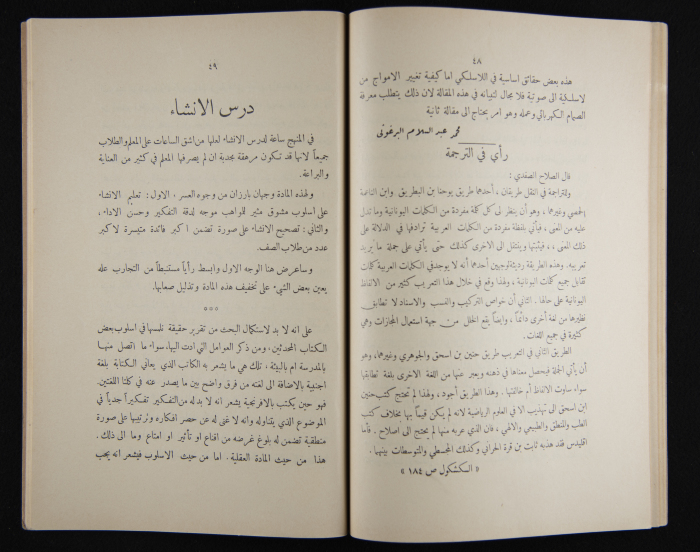 ٤٨
هذه بعض حقائق اساسية في اللاسلكي اما كيفية تغيير الامواج من
لاسلكية الى صوتية فلا مجال لتبيانه في هذه المقالة لان ذلك يتطلب معرفة
الصمام الكهربائي وعمله وهو امر يحتاج الى مقالة ثانية
محمد عبد السلام البرغوثي
رأي في الترجمة
قال الصلاح الصفدي :
وللتراجمة في النقل طريقان ، أحدهما طريق يوحنا بن البطريق وابن الناعمة
الحمصي وغيرهما ، وهو أن ينظر لى كل كلمة مفردة من الكلمات اليونانية وما تدل
عليه من المعنى ، فيأتي بلفظة مفردة من الكلمات العربية ترادفها في الدلالة على
ذلك المعنى ، فيثبتها وينتقل الى الاخرى كذلك حتى يأتي على جملة ما يريد
تعريبه . وهذه الطريقة رديئة لوجهين أحدهما أنه لا يوجد في الكلمات العربية كلمات
تقابل جميع كلمات اليونانية ، ولهذا وقع في خلال هذا التعريب كثير من الالفاظ
اليونانية على حالها . الثاني أن خواص التركيب والنسب والاسناد لا تطابق
نظيرها من لغة أخرى دائماً ، وايضاً يقع الخلل من جهة استعمال المجازات وهي
كثيرة في جميع اللغات .
الطريق الثاني في التعريب طريق حنين بن اسحق والجوهري وغيرهما ، وهو
أن يأتي الجملة فيحصل معناها في ذهنه ويعبر عنها من اللغة الاخرى بلغة تطابقها
سواء ساوت الالفاظ أم خالفتها . وهذا الطريق أجود ، ولهذا لم تحتج كتب حنين
ابن اسحق الى تهذيب لا في العلوم الرياضية لانه لم يكن قيماً بها بخلاف كتب
الطب والمنطق والطبيعي والالهي ، فان الذي عربه منها لم يحتج الى اصلاح . فأما
اقليدس فقد هذبه ثابت بن قرة الحراني وكذلك المجسطي والمتوسطات بينهما .
« الكشكول ص ١٨٤ »
٤٩
درس الانشاء
في المنهج ساعة لدرس الانشاء لعلها من اشق الساعات على المعلم والطلاب
جميعاً لانها قد تكون مرهقة مجدبة ان لم يصرفها المعلم في كثير من العناية
والبراعة .
ولهذه المادة وجهان بارزان من وجوه العسر ، الاول : تعليم الانشاء
على اسلوب مشوق مثير للمواهب موجه لدقة التفكير وحسن الاداء ،
والثاني : تصحيح الانشاء على صورة تضمن اكبر فائدة متيسرة لاكبر
عدد من طلاب الصف .
وساعرض هنا الوجه الاول وابسط رأياً مستنبطاً من التجارب عله
يعين بعض الشيء على تخفيف هذه المادة وتذليل صعابها .
***
على انه لا بد لاستكمال البحث من تقرير حقيقة نلمسها في اسلوب بعض
الكتاب المحدثين . ومن ذكر العوامل التي ادت اليها ، سواء ما اتصل منها
بالمدرسة ام بالبيئة ، تلك هي ما يشعر به الكاتب الذي يعاني الكتابة بلغة
اجنبية بالاضافة الى لغته من فرق واضح بين ما يصدر عنه في كلتا اللغتين .
فهو حين يكتب بالافرنجية يشعر انه لا بد له من التفكير تفكيراً جدياً في
الموضوع الذي يتناوله وانه لا غنى له عن حصر افكاره وترتيبها على صورة
منطقية تضمن له بلوغ غرضه من اقناع او تأثير او امتاع وما الى ذلك .
هذا من حيث المادة العقلية . اما من حيث الاسلوب فيشعر انه يجب